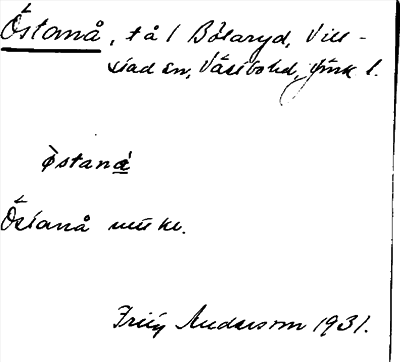 Östanå, t å l Bolaryd, Vill-
stad sn, Västbo hd, Jönk l.
östaná
Östanå
Andersson 1931.